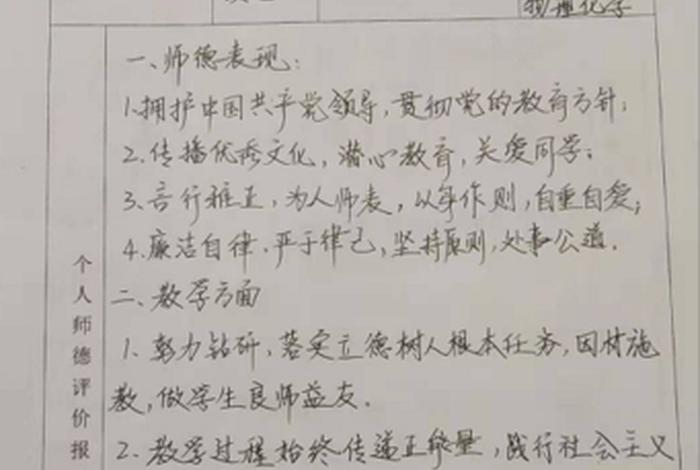 物理化学
一、师德表现：
1.拥护中国共产党领导，贯彻党的教育方针；
2.传播优秀文化，潜心教育，关爱同学；
3.言行雅正，为人师表，以身作则，自重自爱；
4.廉洁自律，严于律己，坚持原则，处事公道．
个人师德评价报
二、教学方面
1．努力钻研，落实立德树人根本任务，因材施
教，做学生良师益友．
2．教学过程始终传递正能量，践行社会主义